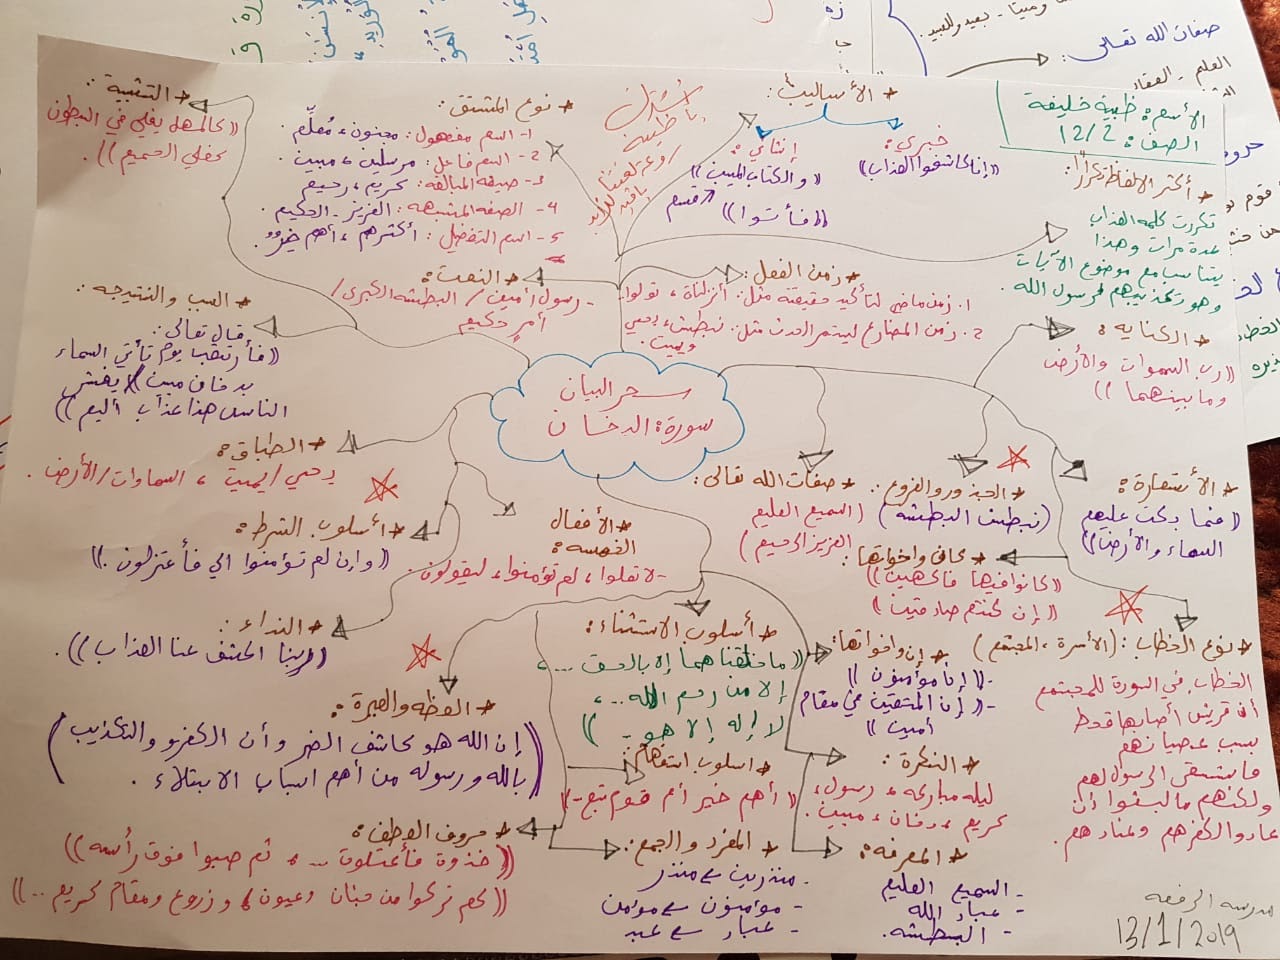 سحر البيان
سورة الدخان
الأسم: ظبية خليفة
الصف: 12/2
* أكثر الالفاظ تكرارًا:
تكررت كلمة العذاب
عدة مرات وهذا
يتناسب مع موضوع الآيات
وهو تكذيبهم لرسول الله.
* الأساليب:
خبري:
((إنا كاشفوا العذاب))
إنشائي:
((والكتاب المبين))
قسم
((فأتوا))
* نوع المشتق:
1- اسم مفعول: مجنون، مُعلّم.
2- اسم فاعل: مرسلين، مبين.
3- صيغة المبالغة: كريم، رحيم
4- الصفة المشبهة: العزيز - الحكيم.
5- اسم التفضيل: أكثرهم، أهم خيرٌ.
* التشبية:
((كالمهل يغلي في البطون
كغلي الحميم)).
* زمن الفعل:
1. زمن ماضي لتأكيد حقيقته مثل: أنزلناه، تولوا.
2. زمن المضارع ليستمر الحدث مثل: نبطش، يحيي
ويميت.
* النعت:
- رسول أمين / البطشة الكبرى /
أمر حكيم
* السبب والنتيجة:
قال تعالى:
((فأرتقب يوم تأتي السماء
بدخان مبين / يغشى
الناس هذا عذاب أليم))
* الكناية:
((رب السموات والأرض
وما بينهما))
* الطباق:
يحيي / يميت، السماوات / الأرض.
* الأستعارة:
((فما بكت عليهم
السماء والأرض))
* الجذور والفروع:
(نبطش البطشة)
* صفات الله تعالى:
(السميع العليم
العزيز الرحيم)
* كان واخواتها:
((كانوا فيها فاكهين))
((إن كنتم صادقين))
* الأفعال
الخمسة:
- لا تعلوا، لم تؤمنوا، ليقولون.
* أسلوب الشرط:
((وإن لم تؤمنوا الي فأعتزلون.))
* النداء:
((ربنا اكشف عنا العذاب)).
* نوع الخطاب: (الأسرة، المجتمع)
الخطاب في السورة للمجتمع
أن قريش أصابها قحط
بسبب عصيانهم
فاستسقى الرسول لهم
ولكنهم ما لبثوا أن
عادوا لكفرهم وعنادهم.
* إن واخواتها:
- ((إنا مؤمنون))
- ((إن المتقين في مقام
أمين))
* أسلوب الاستثناء:
((ما خلقناهما إلا بالحق ...،
إلا من رحم الله ...،
لا إله إلا هو -))
* العظة والعبرة:
((إن الله هو كاشف الضر وأن الكفر والتكذيب
بالله ورسوله من أهم أسباب الابتلاء.))
* اسلوب استفهام:
((أهم خير أم قوم تبع -))
* النكرة:
ليلة مباركة، رسول،
كريم، دخان، مبين.
* حروف العطف:
((خذوة فأعتلوة ...، ثم صبوا فوق رأسه))
((كم تركوا من جنان وعيون، وزروع ومقام كريم...))
* المفرد والجمع:
- منذرين ← منذر
- مؤمنون ← مؤمن
- عباد ← عبد
* المعرفة:
- السميع العليم
- عباد الله
- البطشه.
مدرسة الرفعة
13/1/2019
صفات الله تعالى: